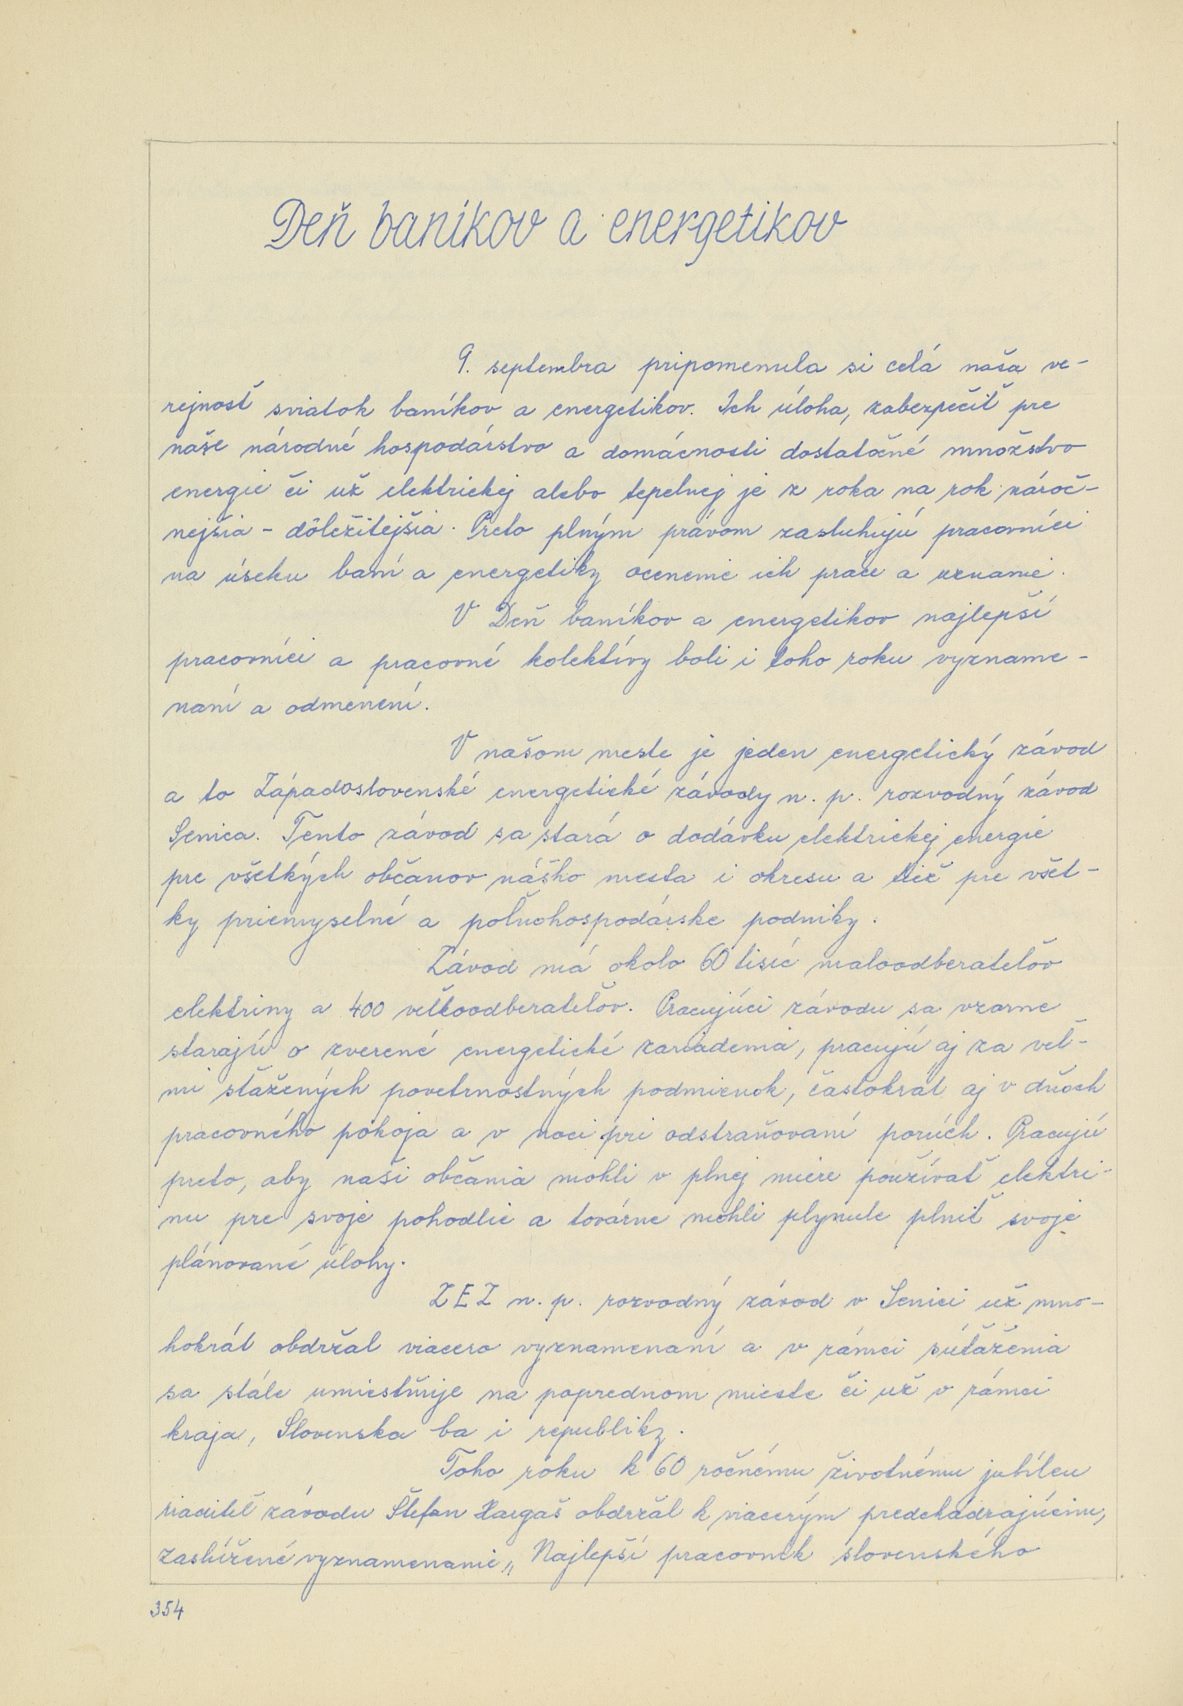 Deň baníkov a energetikov
9. septembra pripomenula si celá naša ve-
rejnosť sviatok baníkov a energetikov. Ich úloha, zabezpečiť pre
naše národné hospodárstvo a domácnosti dostatočné množstvo
energie či už elektrickej alebo tepelnej je z roka na rok nároč-
nejšia - dôležitejšia. Preto plným právom zasluhujú pracovníci
na úseku baní a energetiky ocenenie ich práce a uznanie.
V Deň baníkov a energetikov najlepší
pracovníci a pracovné kolektívy boli i toho roku vyzname-
naní a odmenení.
V našom meste je jeden energetický závod
a to Západoslovenské energetické závody n. p. rozvodný závod
Senica. Tento závod sa stará o dodávku elektrickej energie
pre všetkých občanov nášho mesta i okresu a tiež pre všet-
ky priemyselné a poľnohospodárske podniky.
Závod má okolo 60 tisíc maloodberateľov
elektriny a 400 veľkoodberateľov. Pracujúci závodu sa vzorne
starajú o zverené energetické zariadenia, pracujú aj za veľ-
mi sťažených povetrnostných podmienok, častokrát aj v dňoch
pracovného pokoja a v noci pri odstraňovaní porúch. Pracujú
preto, aby naši občania mohli v plnej miere používať elektri-
nu pre svoje pohodlie a továrne mohli plynule plniť svoje
plánované úlohy.
ZEZ n. p. rozvodný závod v Senici už mno-
hokrát obdržal viacero vyznamenaní a v rámci súťaženia
sa stále umiestňuje na poprednom mieste či už v rámci
kraja, Slovenska ba i republiky.
Toho roku k 60 ročnému životnému jubileu
riaditeľ závodu Štefan Hargaš obdržal k viacerým predchádzajúcim,
zaslúžené vyznamenanie „Najlepší pracovník slovenského
354